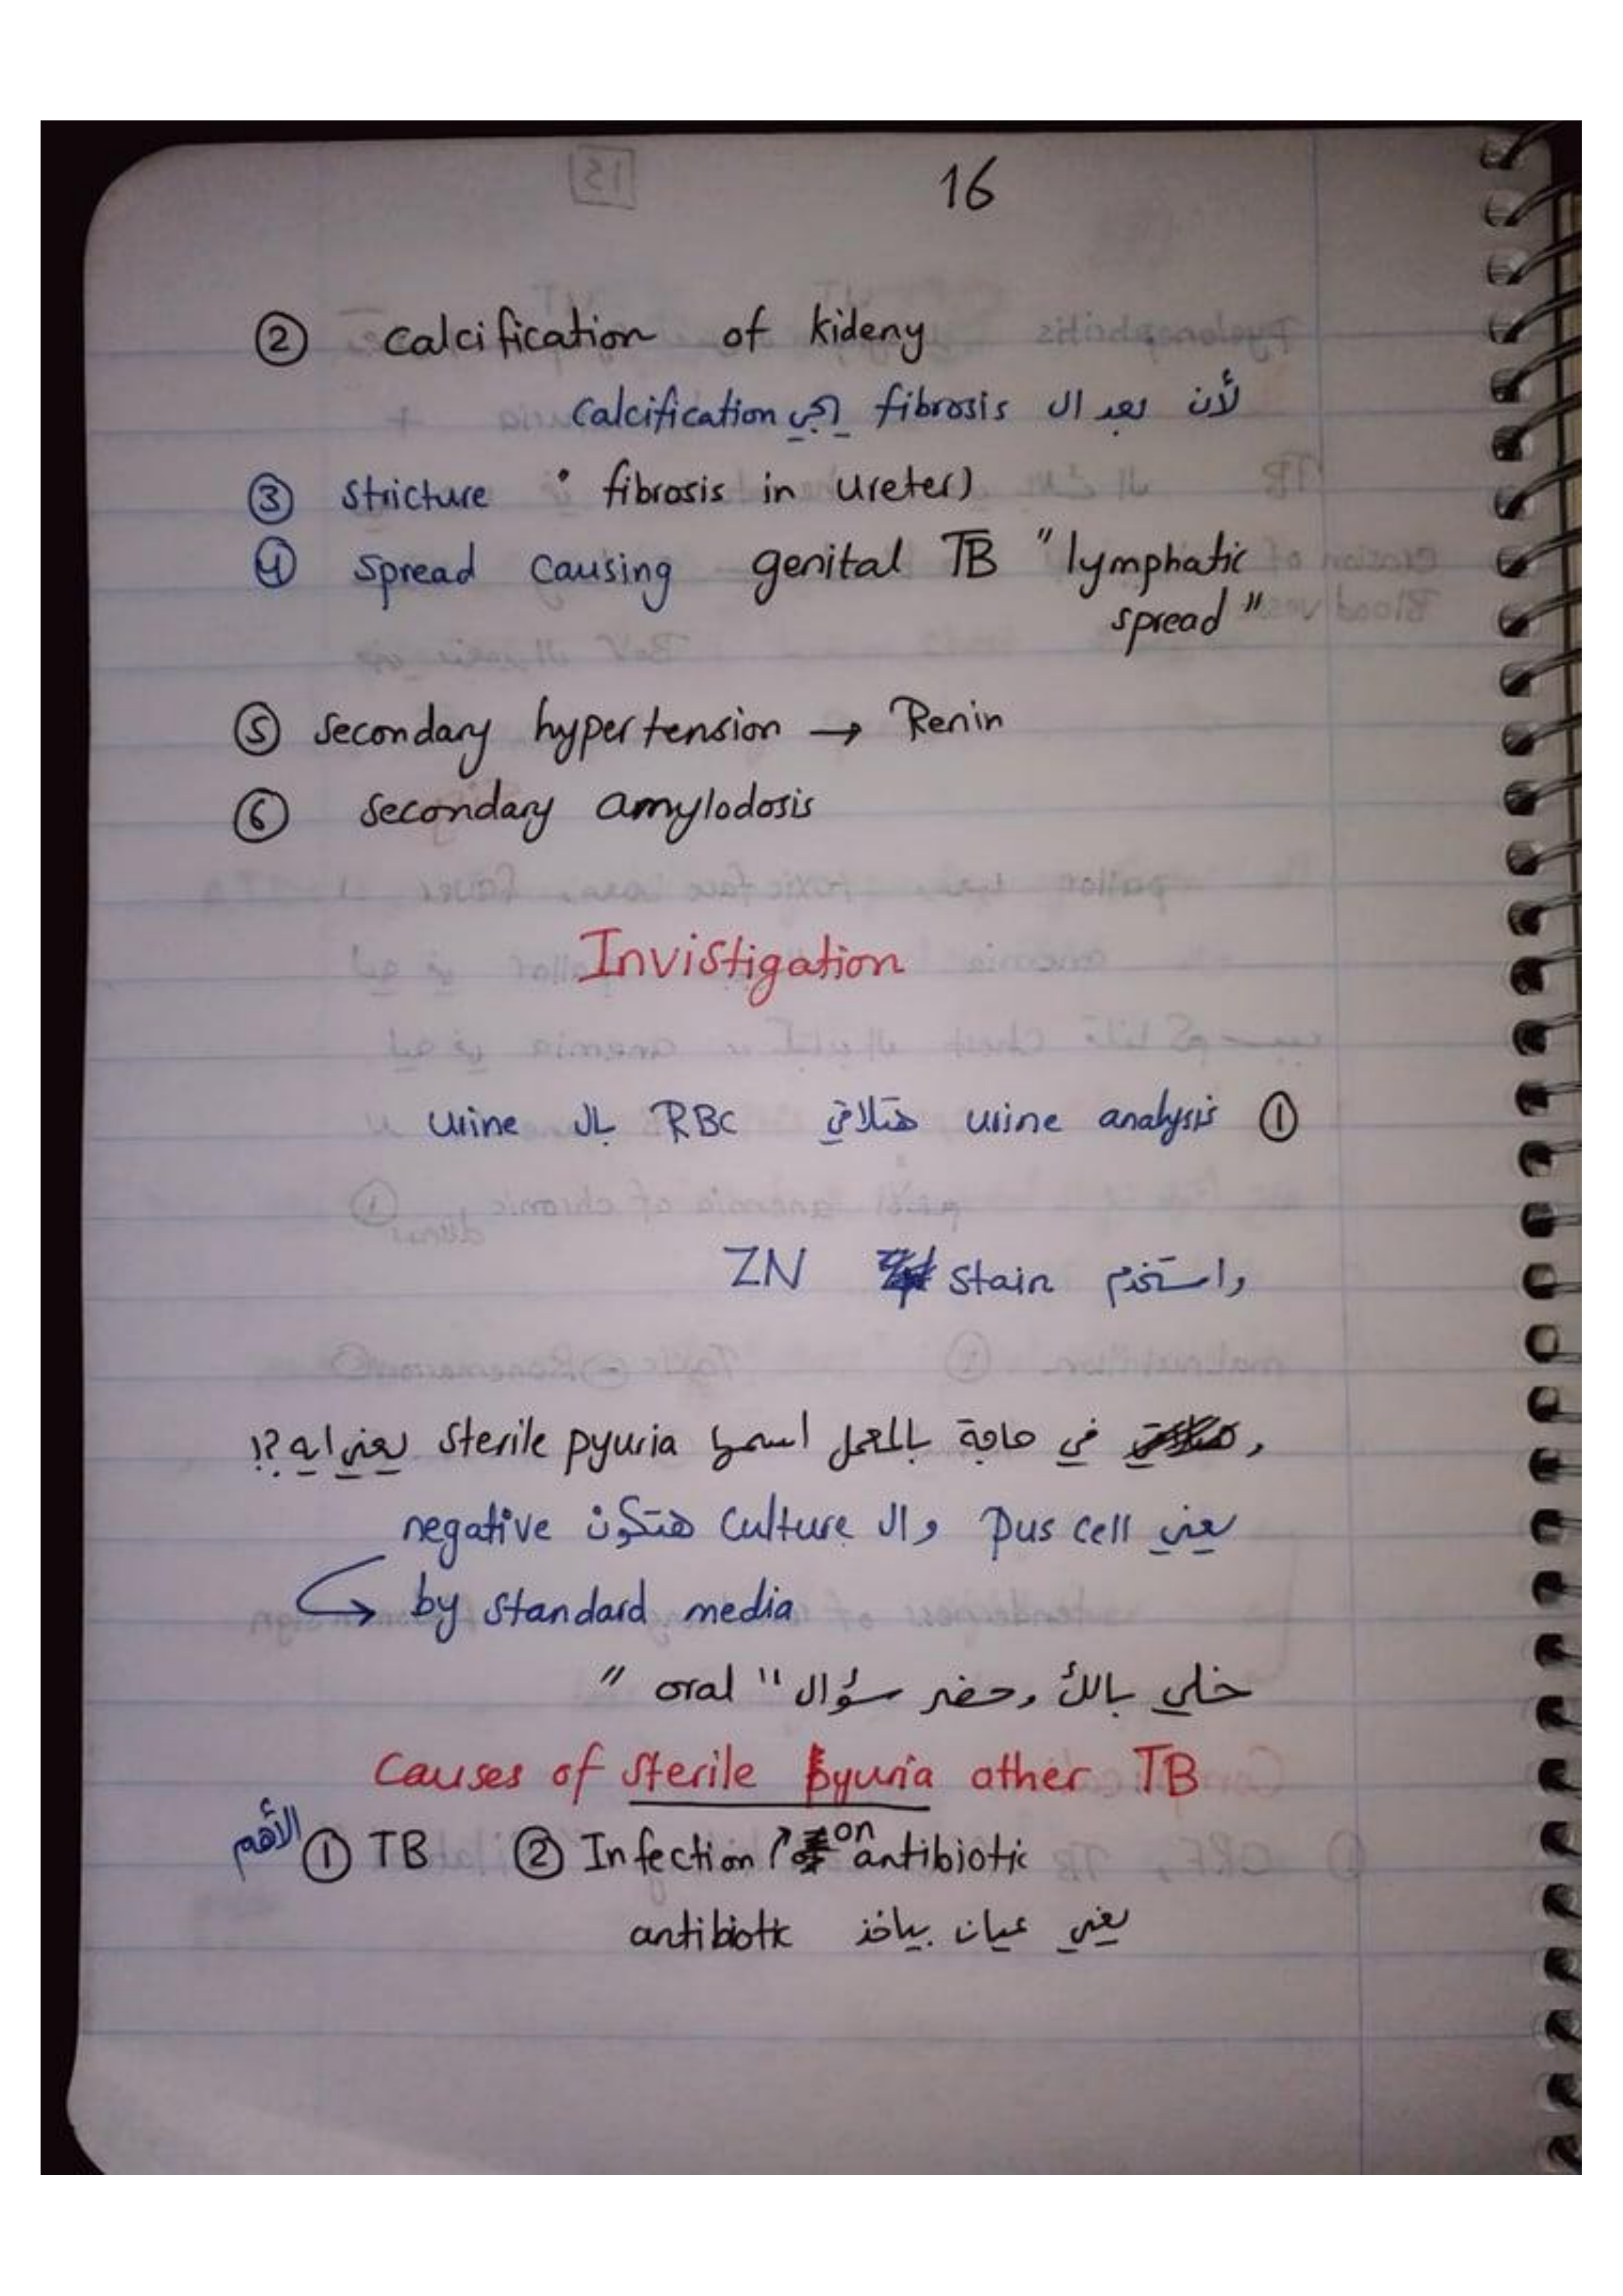 16
② Calcification of kideny
لأن بعد ال fibrosis يجي calcification
③ Stricture : fibrosis in ureter)
④ Spread causing genital TB "lymphatic
spread"
⑤ Secondary hypertension → Renin
⑥ Secondary amylodosis
Invistigation
① urine analysis هتلاقي RBC بال urine
واستخدم stain ZN
و في حاجة بالمعمل اسمها sterile pyuria يعني ايه ؟!
يعني Pus cell وال culture هتكون negative
↪ by standard media
خلي بالك وحضر سؤال "oral"
Causes of sterile pyuria other TB
الأهم ① TB ② Infection ↗ on antibiotic
يعني عيان بياخذ antibiotic